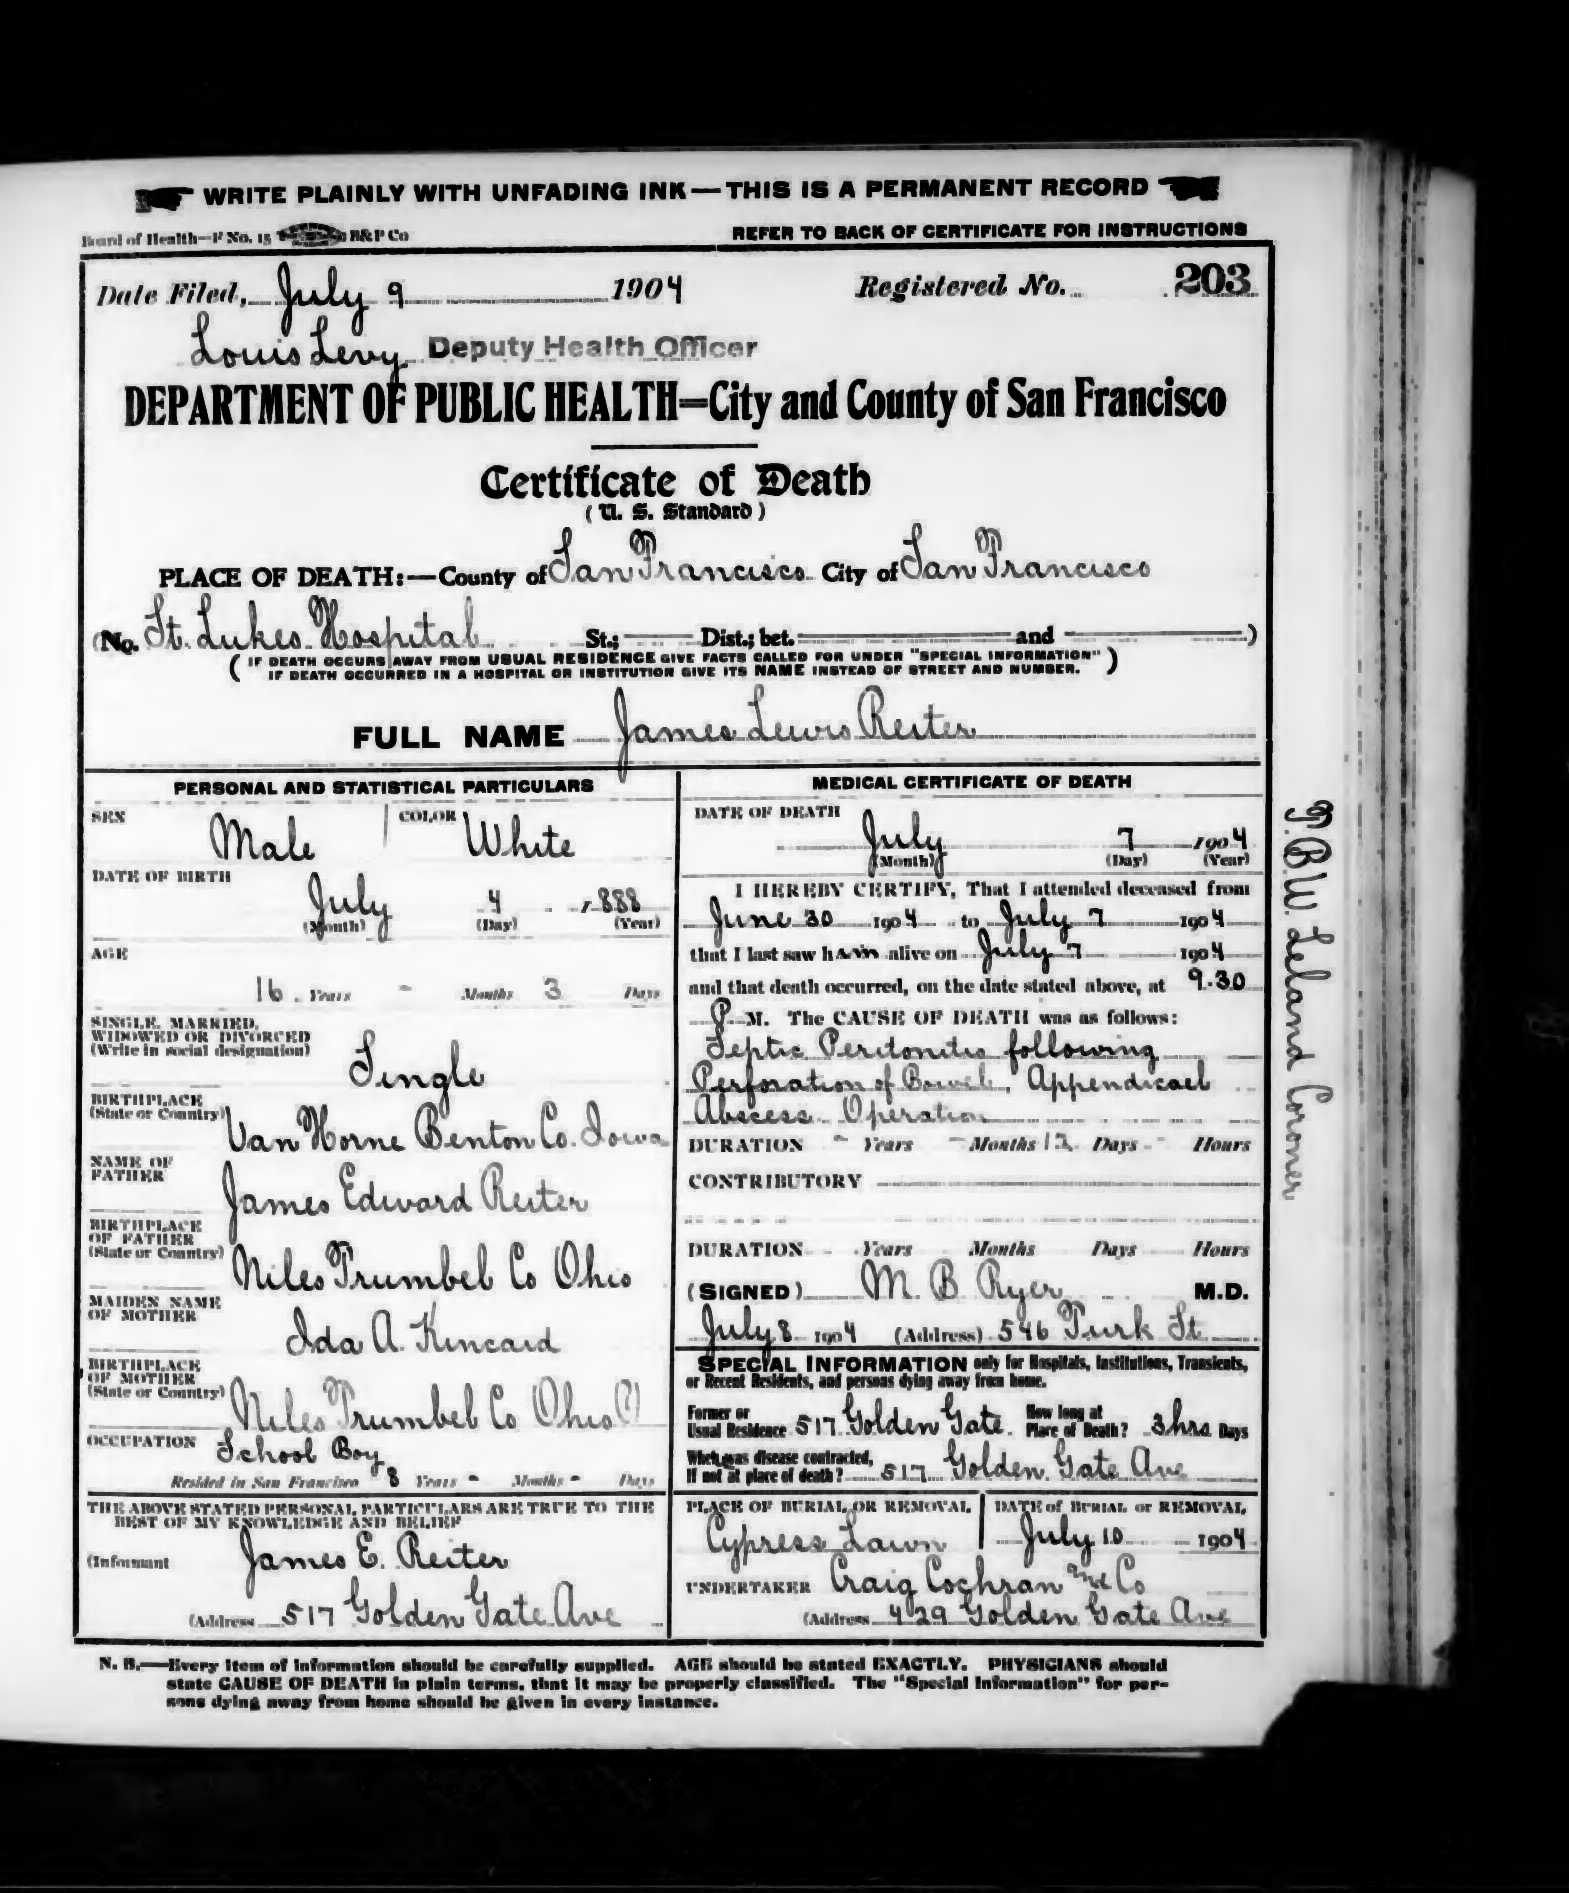 WRITE PLAINLY WITH UNFADING INK—THIS IS A PERMANENT RECORD
Board of Health—F No. 15 B&P Co
REFER TO BACK OF CERTIFICATE FOR INSTRUCTIONS
Date Filed, July 9 1904 Registered No. 203
Louis Levy Deputy Health Officer
DEPARTMENT OF PUBLIC HEALTH=City and County of San Francisco
Certificate of Death
(U. S. Standard)
PLACE OF DEATH:—County of San Francisco City of San Francisco
(No. St. Lukes Hospital St.; Dist.; bet. and )
(IF DEATH OCCURS AWAY FROM USUAL RESIDENCE GIVE FACTS CALLED FOR UNDER "SPECIAL INFORMATION"
IF DEATH OCCURRED IN A HOSPITAL OR INSTITUTION GIVE ITS NAME INSTEAD OF STREET AND NUMBER.)
FULL NAME James Lewis Reiter
PERSONAL AND STATISTICAL PARTICULARS
SEX Male COLOR White
DATE OF BIRTH
July 4 1888
(Month) (Day) (Year)
AGE
16 Years - Months 3 Days
SINGLE, MARRIED,
WIDOWED OR DIVORCED
(Write in social designation)
Single
BIRTHPLACE
(State or Country)
Van Horne Benton Co. Iowa
NAME OF
FATHER
James Edward Reiter
BIRTHPLACE
OF FATHER
(State or Country)
Niles Trumbel Co Ohio
MAIDEN NAME
OF MOTHER
Ida A. Kincaid
BIRTHPLACE
OF MOTHER
(State or Country)
Niles Trumbel Co Ohio
OCCUPATION School Boy
Resided in San Francisco 8 Years - Months - Days
THE ABOVE STATED PERSONAL PARTICULARS ARE TRUE TO THE
BEST OF MY KNOWLEDGE AND BELIEF
(Informant James E. Reiter
(Address 517 Golden Gate Ave
MEDICAL CERTIFICATE OF DEATH
DATE OF DEATH
July 7 1904
(Month) (Day) (Year)
I HEREBY CERTIFY, That I attended deceased from
June 30 1904 to July 7 1904
that I last saw him alive on July 7 1904
and that death occurred, on the date stated above, at 9.30
P M. The CAUSE OF DEATH was as follows:
Septic Peritonitis following
Perforation of Bowel, Appendicael
Abscess Operation
DURATION - Years - Months 12 Days - Hours
CONTRIBUTORY
DURATION Years Months Days Hours
(SIGNED) M. B. Ryer M.D.
July 8 1904 (Address) 546 Turk St
SPECIAL INFORMATION only for Hospitals, Institutions, Transients,
or Recent Residents, and persons dying away from home.
Former or
Usual Residence 517 Golden Gate
How long at
Place of Death? 3 hrs Days
When was disease contracted,
If not at place of death? 517 Golden Gate Ave
PLACE OF BURIAL OR REMOVAL
Cypress Lawn
DATE of BURIAL or REMOVAL
July 10 1904
UNDERTAKER Craig Cochran and Co
(Address 429 Golden Gate Ave
N. B.—Every item of information should be carefully supplied. AGE should be stated EXACTLY. PHYSICIANS should
state CAUSE OF DEATH in plain terms, that it may be properly classified. The "Special Information" for per-
sons dying away from home should be given in every instance.
T.B.W. Leland Coroner